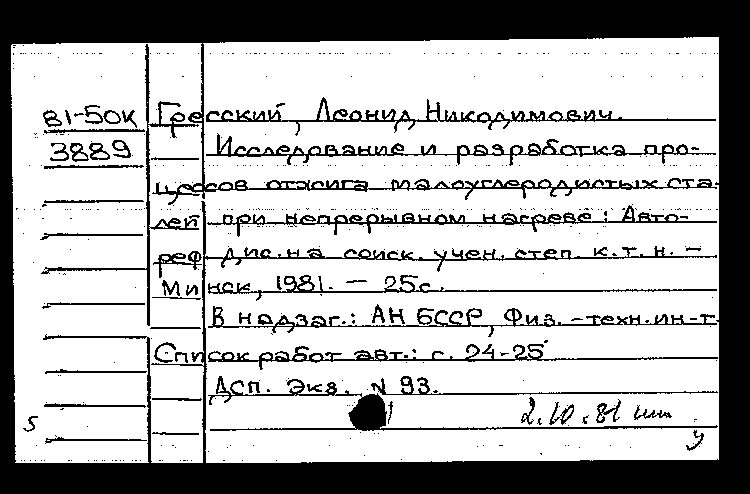 81-50к Гресский, Леонид Никодимович.
3889 Исследование и разработка про-
цессов отжига малоуглеродистых ста-
лей при непрерывном нагреве: Авто-
реф. дис. на соиск. учен. степ. к.т.н. –
Минск, 1981. – 25с.
В надзаг.: АН БССР, Физ.-техн. ин-т.
Список работ авт.: с. 24-25
ДСП. Экз. N 93.
2.10.81
s
у